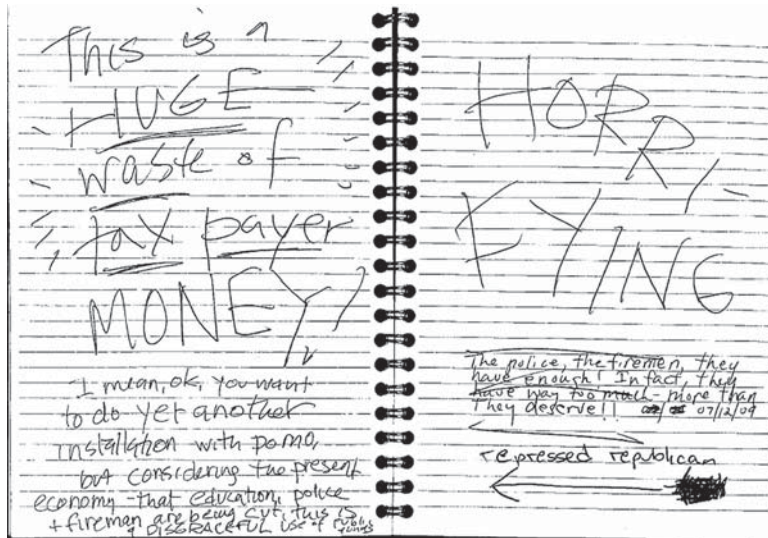 This is a
HUGE
waste of
tax payer
MONEY!
I mean, ok, you want
to do yet another
installation with porno,
but considering the present
economy - that education, police
+ fireman are being cut, this is
A DISGRACEFUL use of public
funds
HORRI-
FYING
The police, the firemen, they
have enough! In fact, they
have way too much - more than
They deserve!! 07/12/09
repressed republican